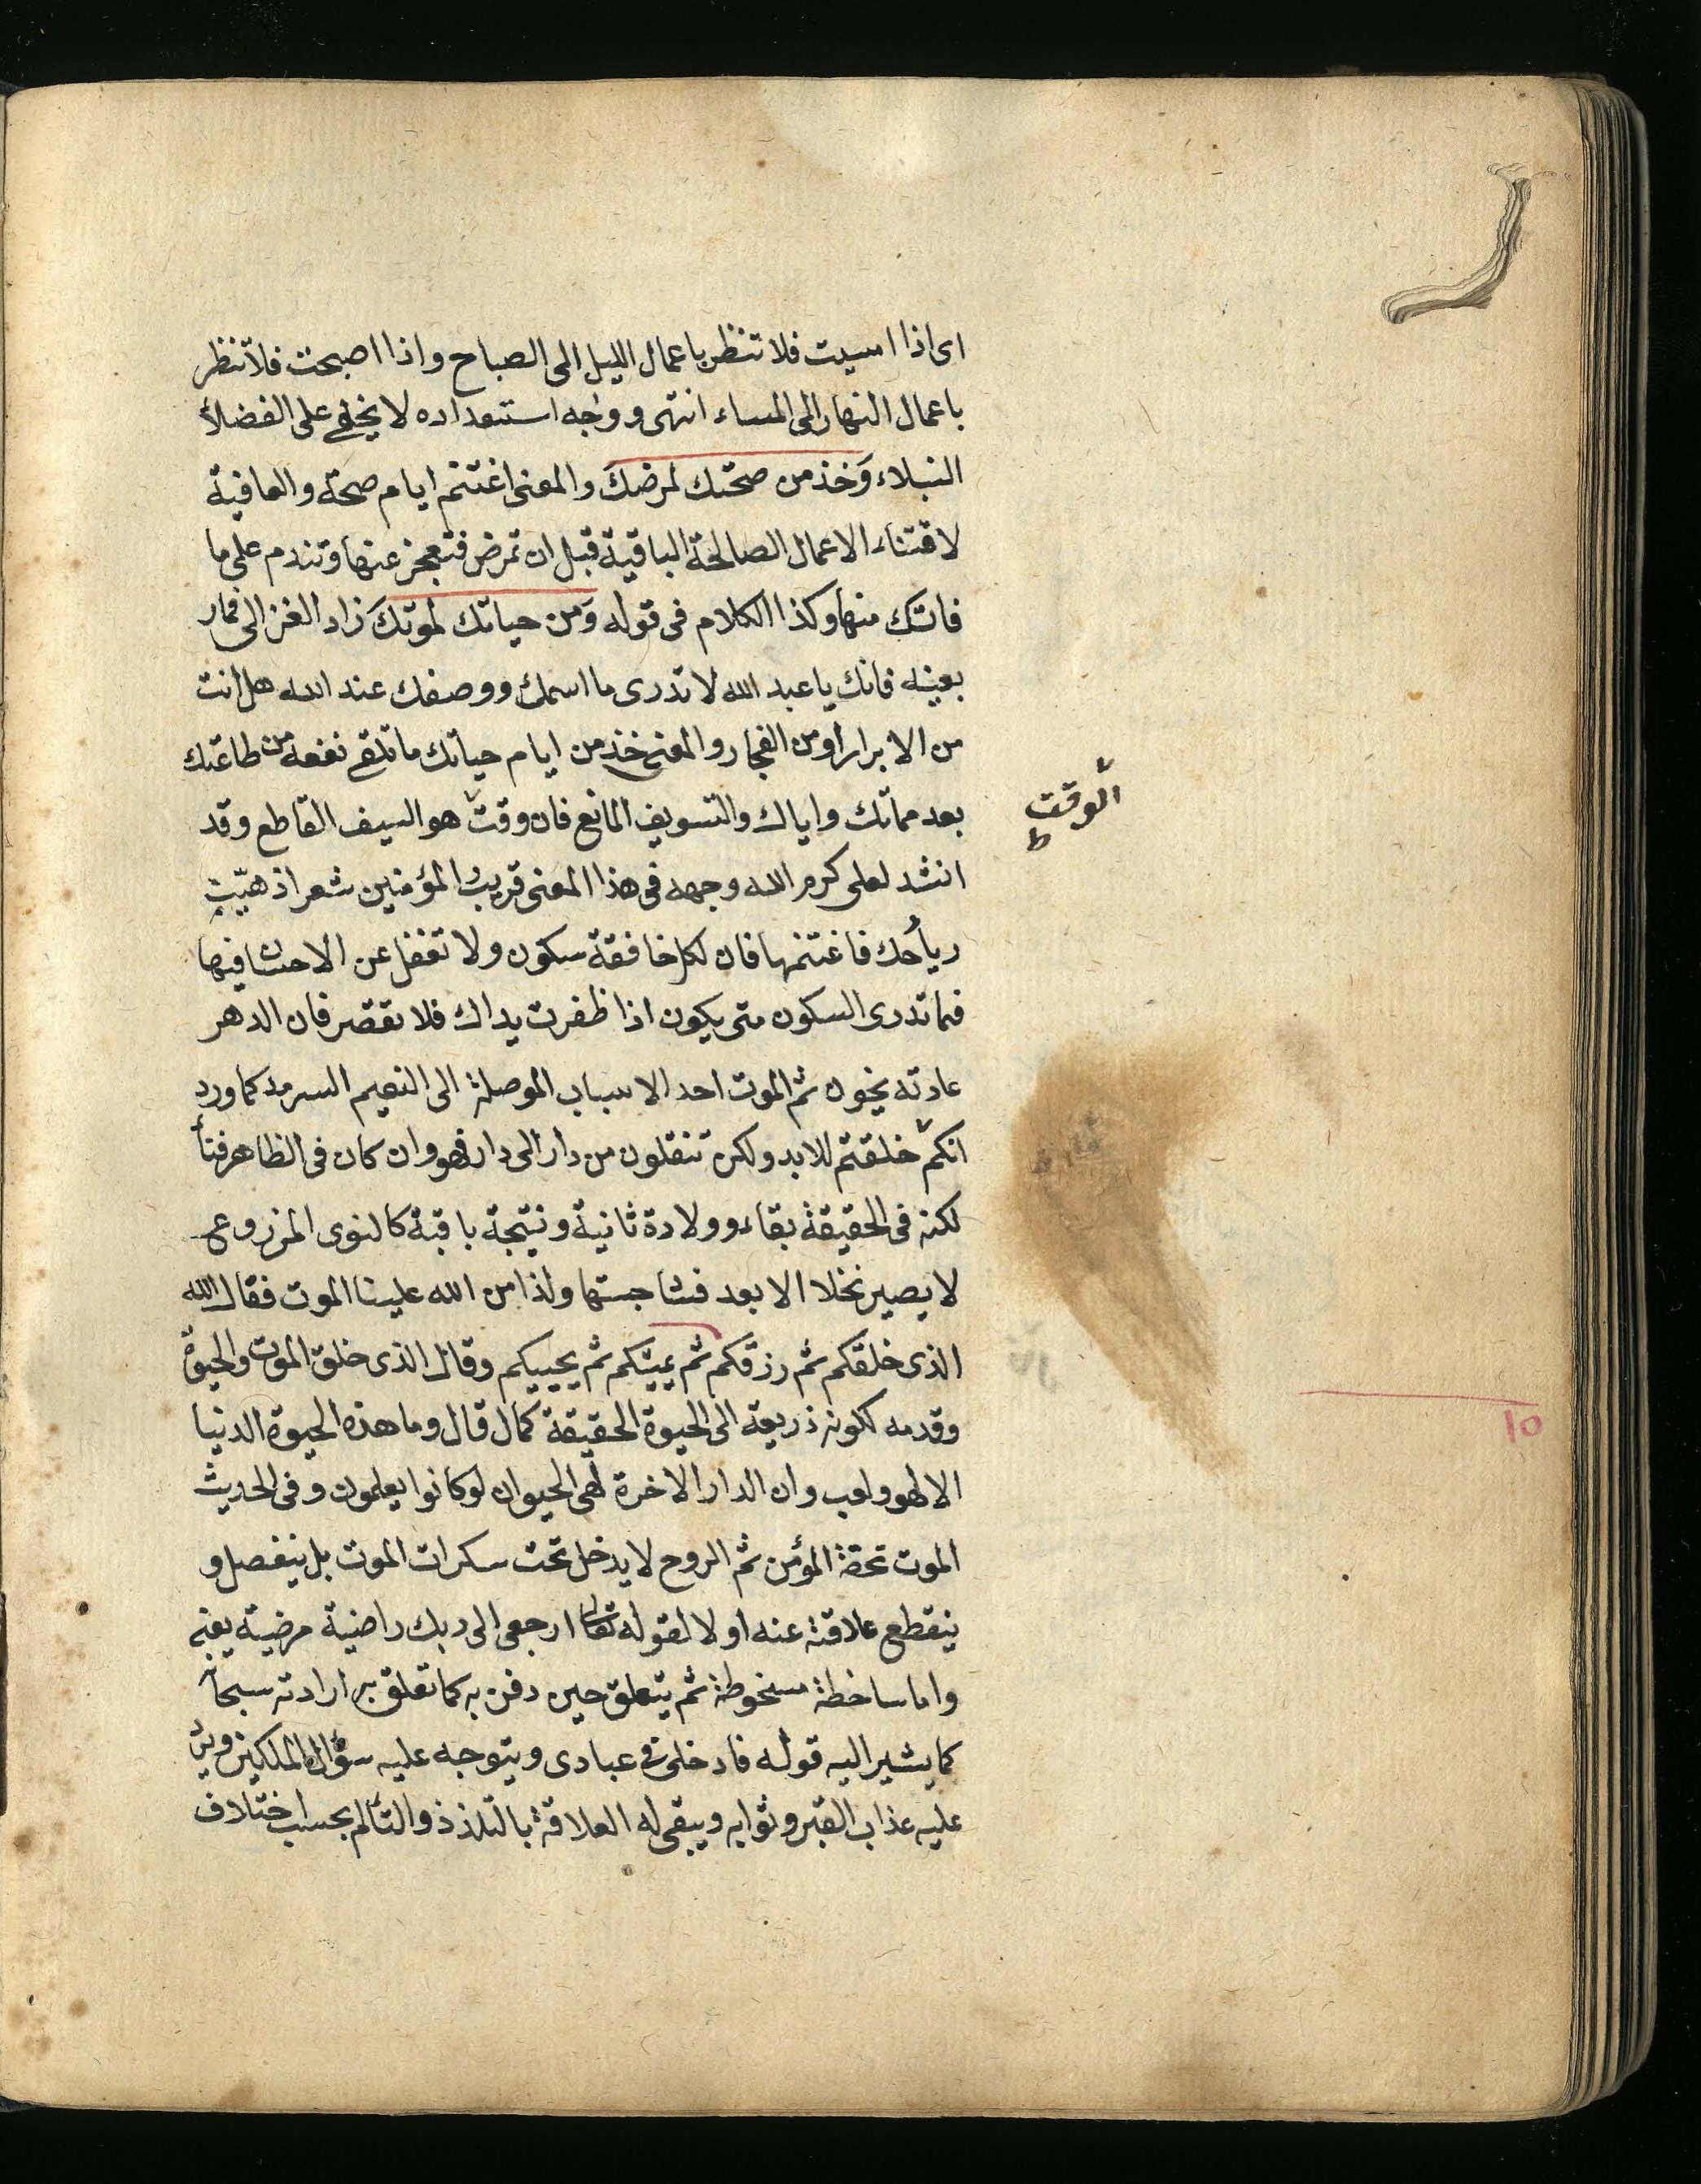 اى اذا امسيت فلا تنظر باعمال الليل الى الصباح واذا اصبحت فلا تنظر
باعمال النهار الى المساء انتهى ووجه استبعداده لا يخفى على الفضلاء
النبلاء وَخذ من صحتك لمرضكَ والمعنى اغتنم ايام صحة والعافية
لاقتناء الاعمال الصالحة الباقية قبل ان تمرض فتعجز عنها وتندم على ما
فاتك منها وكذا الكلام فى قوله وَمن حياتك لموتكَ زاد الغزالى
بعينه فانك يا عبد الله لا تدرى ما اسمك ووصفك عند الله هل انت
من الابرار او من الفجار والمعنى خذ من ايام حياتك ما تلقى نفعه من طاعتك
بعد مماتك واياك والتسويف المانع فان وقت هو السيف القاطع وقد
الوقت ط
انشد لعلى كرم الله وجهه فى هذا المعنى قريب المؤمنين شعر اذ هبّت
رياحك فاغتنمها فان لكل خافقة سكون ولا تغفل عن الاحسان فيها
فما تدرى السكون متى يكون اذا ظفرت يداك فلا تقصر فان الدهر
عادته يخون ثم الموت احد الاسباب الموصلة الى النعيم السرمد كما ورد
انكم خلقتم للابد ولكن تنقلون من دار الى دار فهو وان كان فى الظاهر فنأ
لكنه فى الحقيقة بقاء وولادة ثانية ونتيجة باقية كالنوى المزروع
لا يصير نخلا الا بعد فساد جستها ولذا من الله علينا الموت فقال الله
الذى خلقكم ثم رزقكم ثم يميتكم ثم يحييكم وقال الذى خلق الموت والحيوة
وقدمه لكونه ذريعة الى الحيوة الحقيقة كمال قال وما هذه الحيوة الدنيا
الا لهو ولعب وان الدار الاخرة لهى الحيوان لو كانوا يعلمون وفى الحديث
الموت تحفة المؤمن ثم الروح لا يدخل تحت سكرات الموت بل ينفصل و
ينقطع علاقة عنه اولا لقوله تعالى ارجعى الى ربك راضية مرضية يعنى
واما ساخطة مسخوطة ثم يتعلق حين دفن به كما تعلق به ارادته سبحا
كما يشير اليه قوله فادخلى فى عبادى ويتوجه عليه سؤال الملكين
عليه عذاب القبر وثوابه ويبقى له العلاقة بالتلذذ والتألم بحسب اختلاف
١٥